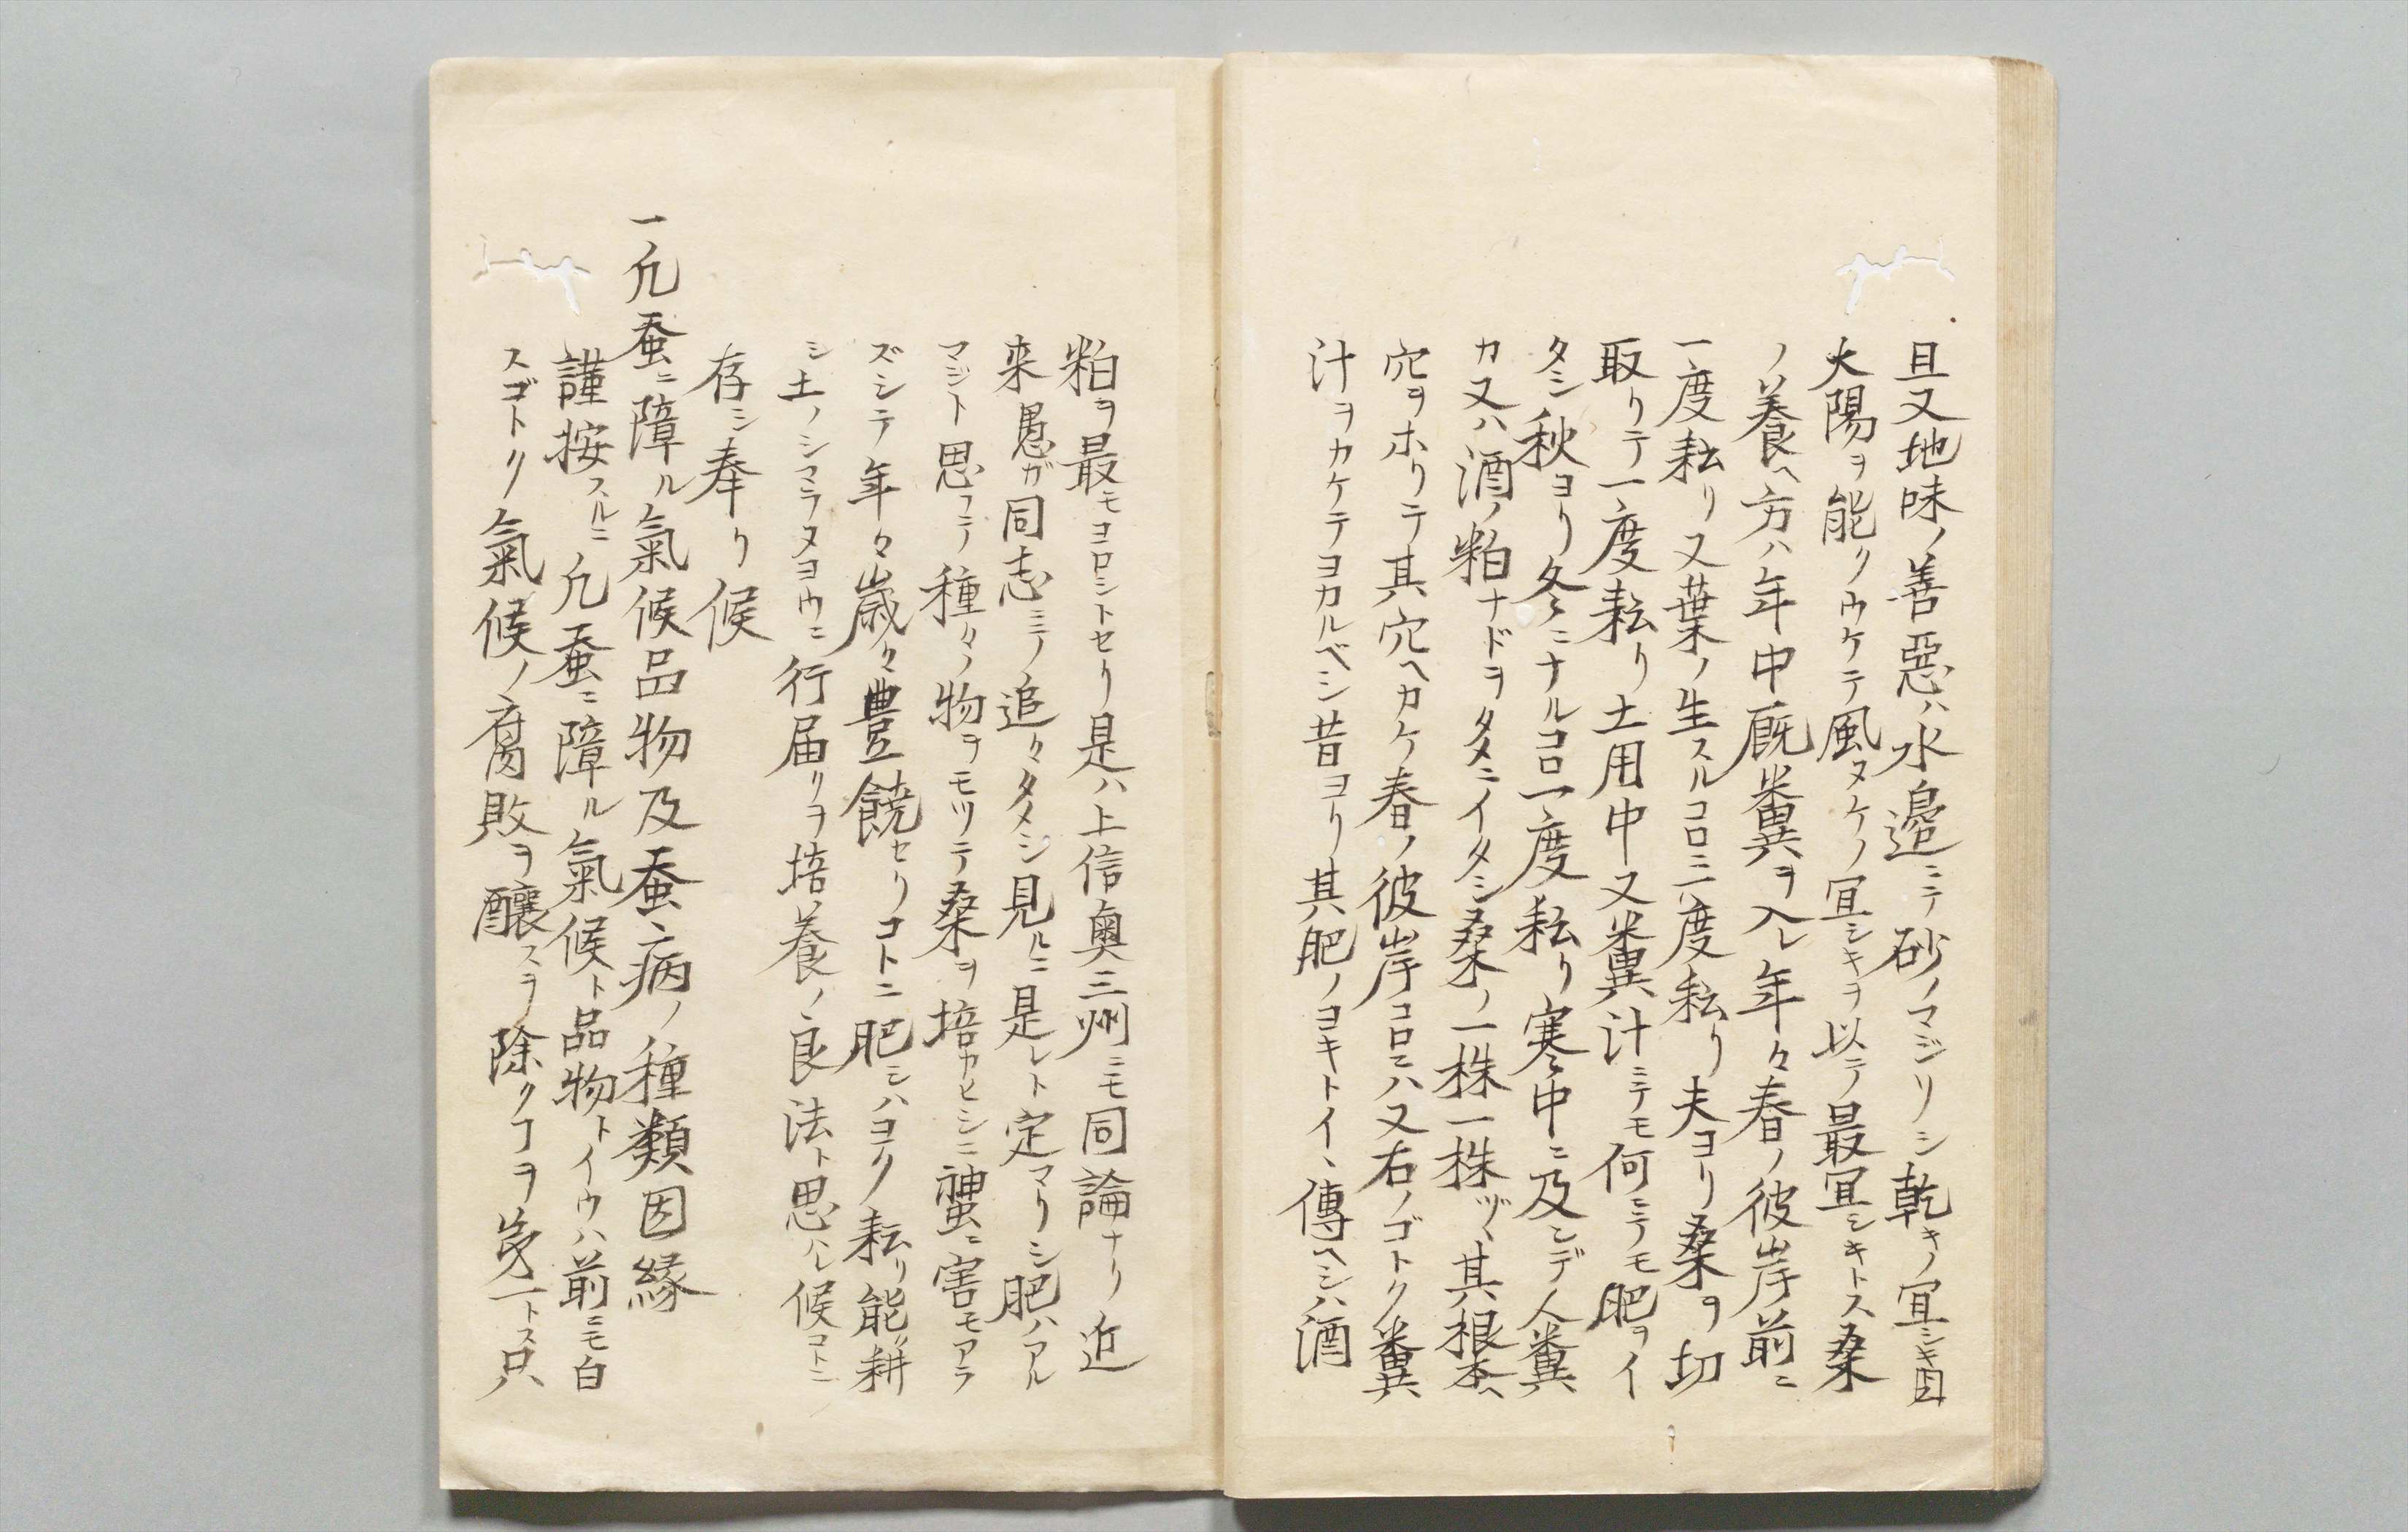 且又地味ノ善惡ハ水邉ニテ砂ノマジリシ乾キノ冝シキ因
大陽ヲ能クウケテ風ヌケノ冝シキヲ以テ最冝シキトス桑
ノ養ヘ方ハ年中厩糞ヲ入レ年々春ノ彼岸前ニ
一度耘リ又葉ノ生スルコロ三度耘リ夫ヨリ桑ヲ切
取リテ一度耘リ土用中又糞汁ニテモ何ニテモ肥ヲイ
タシ秋ヨリ冬ニナルコロ一度耘リ寒中ニ及ンデ人糞
カ又ハ酒ノ粕ナドヲタメニイタシ桑ノ一株一株ヅヽ其根本ヘ
穴ヲホリテ其穴ヘカケ春ノ彼岸コロニハ又右ノゴトク糞
汁ヲカケテヨカルベシ昔ヨリ其肥ノヨキトイヽ傳ヘシハ酒
粕ヲ最モヨロシトセリ是ハ上信奥三州ニモ同論ナリ近
来愚ガ同志ミノ追々タメシ見ルニ是レト定マリシ肥ハアル
マジト思フテ種々ノ物ヲモツテ桑ヲ培カヒシニ蟲ニ害モアラ
ズシテ年々歳々豊饒セリコトニ肥シハヨク耘リ能ク耕
シ土ノシマラヌヨウニ行届リヲ培養ノ良法ト思ハレ候コトニ
存シ奉り候
一凢蚕ニ障ル氣候品物及蚕病ノ種類因縁
謹按スルニ凢蚕ニ障ル氣候ト品物トイウハ前ニモ白
スゴトク氣候ノ腐敗ヲ釀スヲ除クコヲ㐧一トス只